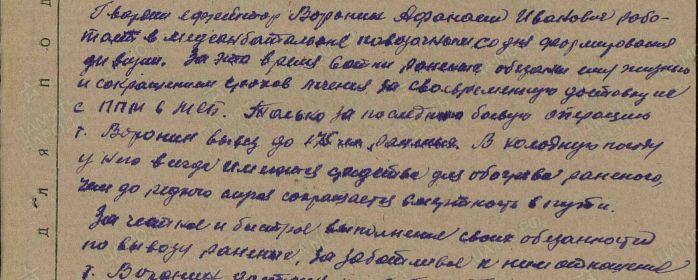 Гвардии ефрейтор Воронин Афанасий Иванович рабо-
тает в медсанбатальоне повозочным со дня формирования
дивизии. За это время сотни раненых обязаны ему жизнью
и сокращением сроков лечения за своевременную доставку их
с ППМ в МСП. Только за последнюю боевую операцию
т. Воронин вывез до 175 раненых. В холодную погоду
у него всегда имеются средства для обогрева раненого,
чем до редкого случая сокращается смертность в пути.
За честное и быстрое выполнение своих обязанностей
по вывозу раненых, за заботливое к ним отношение
т. Воронин
ДЛЯ ПОД